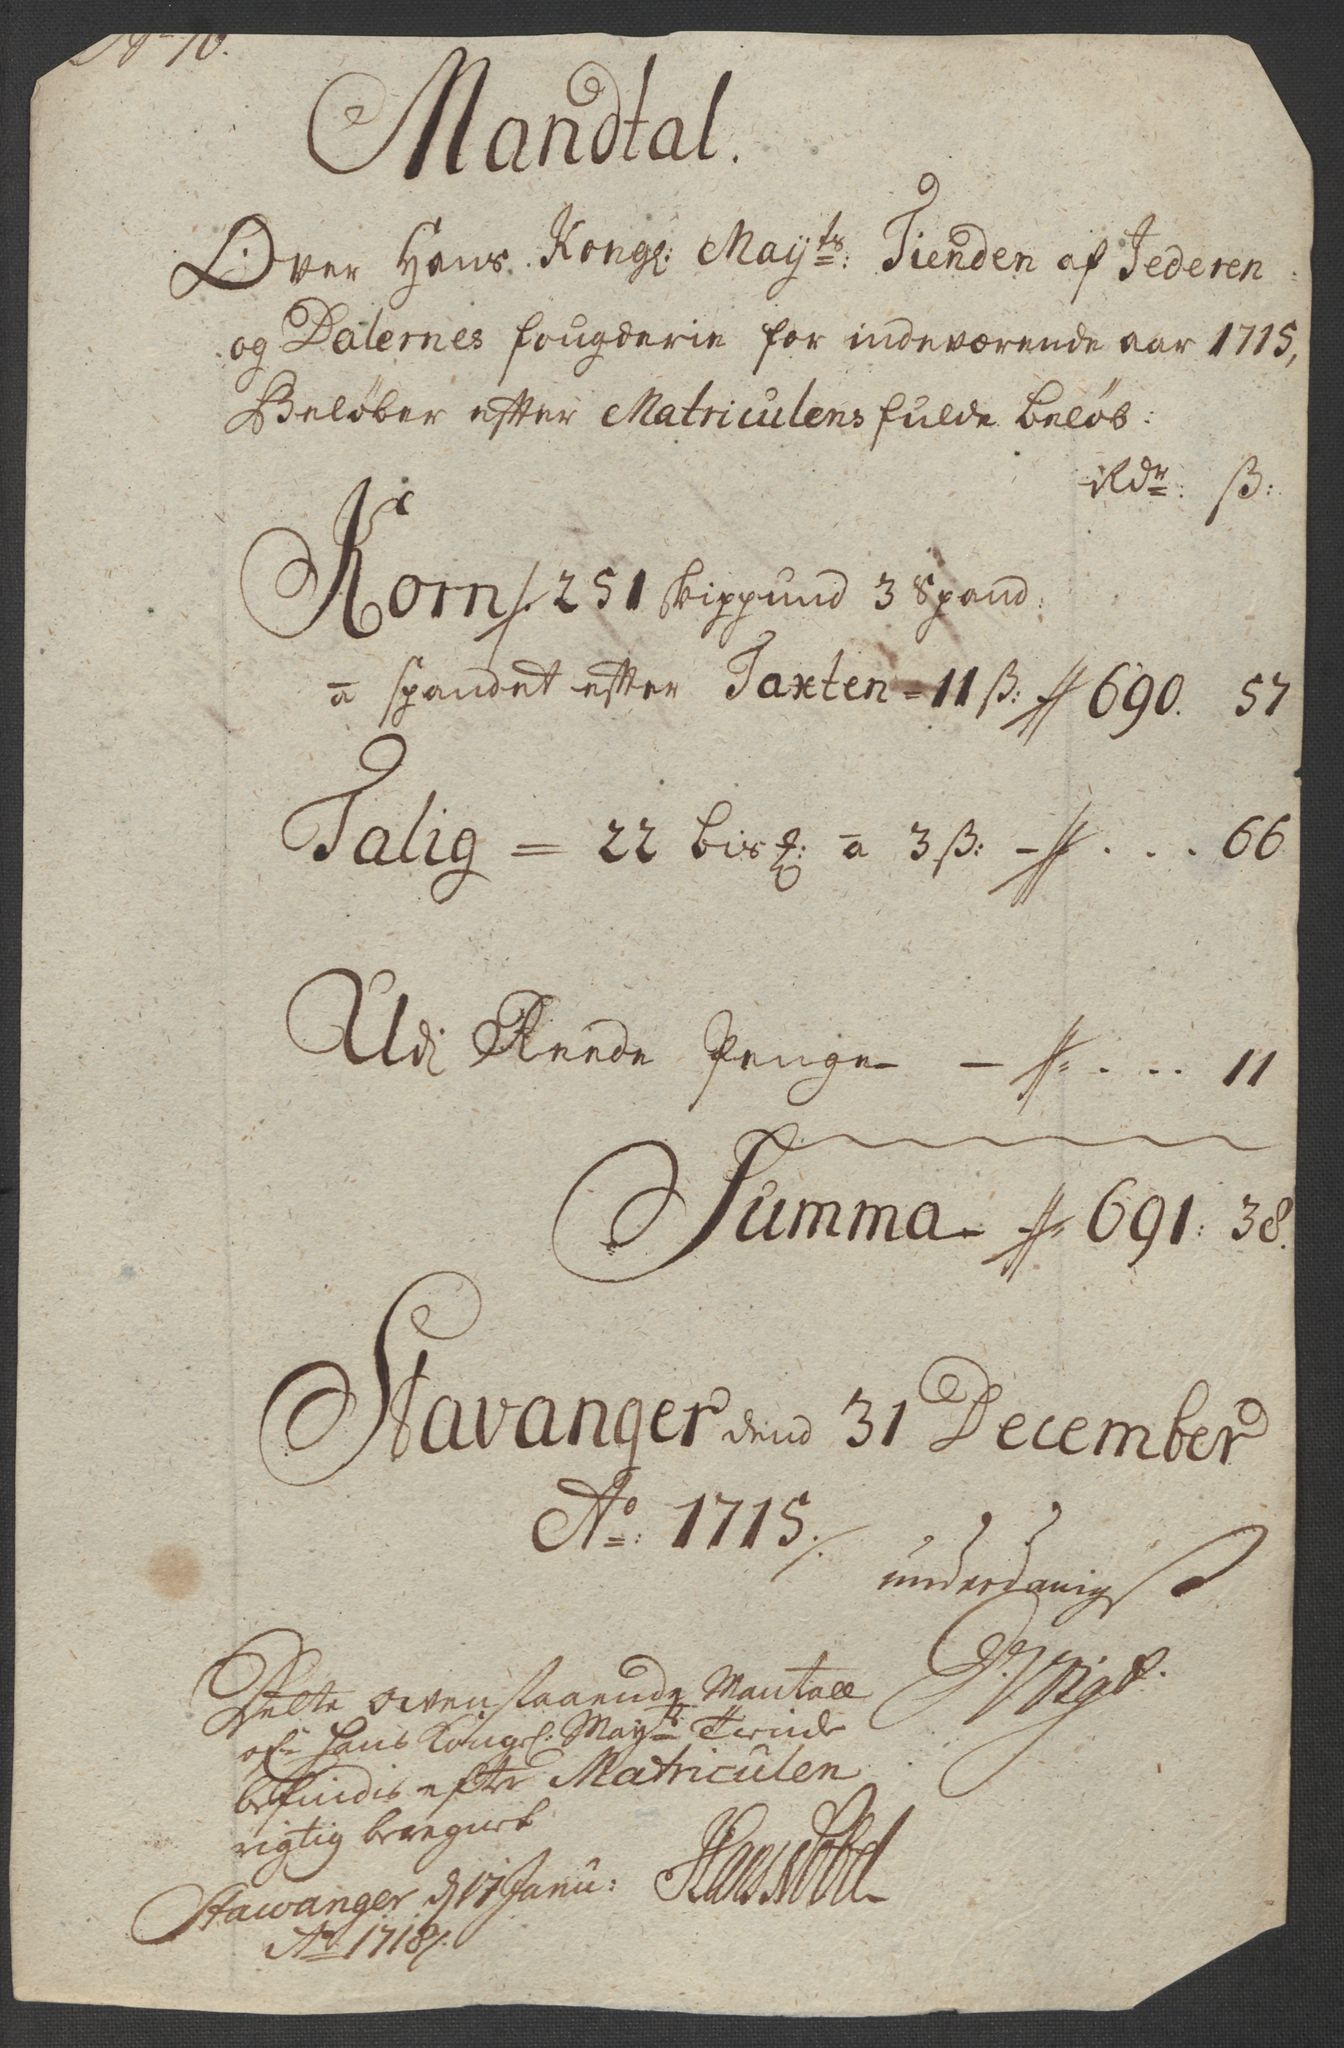 No 10.
Mandtal.
Over Hans Kongl: Mayts: Tienden af Jederen
og Dalernes fougderie for indeværende aar 1715,
Beløber efter Matriculens fulde beløb:
Rdr: ß:
Korn/: 251 skippund 3 Spand:
a spandet efter Taxten = 11 ß: 690. 57
Talig = 22 bis℔: a 3 ß: - . . . 66
Udj Reede Penge - . . . 11
Summa - 691: 38.
Stavanger dend 31 December
Ao: 1715.
underdanigst
Dette ovenstaaende Mantall
af Hans Kongl: Mayts Tiende
befindis efter Matriculen
rigtig beregnet
Stawanger d 17 Janu:
Ao 1718/.